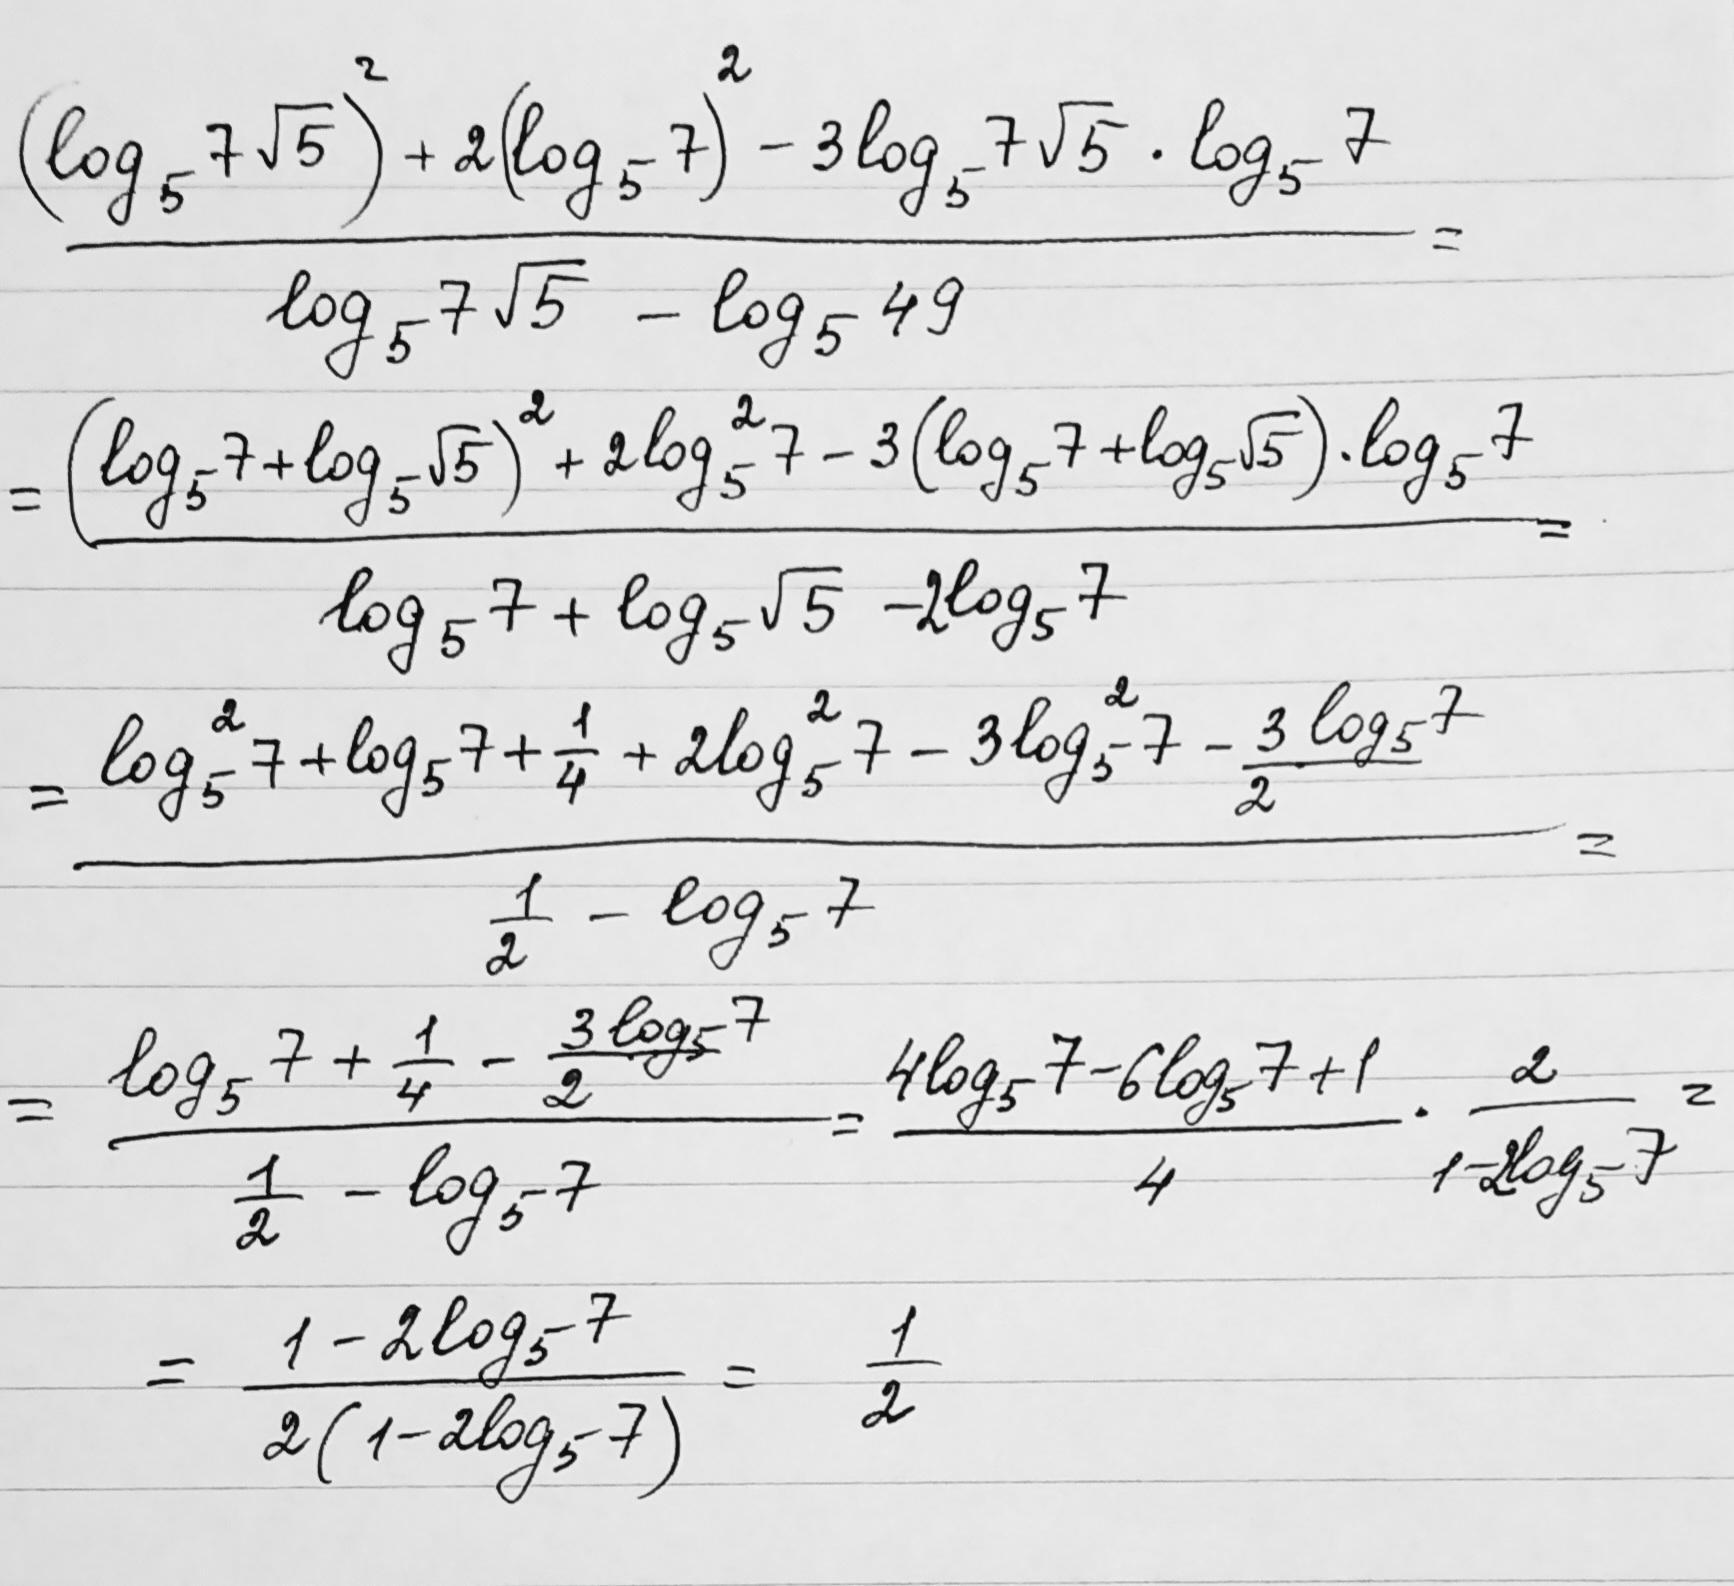 (log₅ 7√5)² + 2(log₅ 7)² - 3log₅ 7√5 · log₅ 7 =
log₅ 7√5 - log₅ 49
= (log₅ 7 + log₅ √5)² + 2log₅² 7 - 3(log₅ 7 + log₅ √5) · log₅ 7 =
log₅ 7 + log₅ √5 - 2log₅ 7
= log₅² 7 + log₅ 7 + 1/4 + 2log₅² 7 - 3log₅² 7 - 3 log₅ 7/2 =
1/2 - log₅ 7
= log₅ 7 + 1/4 - 3log₅ 7/2 = 4log₅ 7 - 6log₅ 7 + 1 · 2 =
1/2 - log₅ 7 4 1 - 2log₅ 7
= 1 - 2log₅ 7 = 1/2
2(1 - 2log₅ 7)